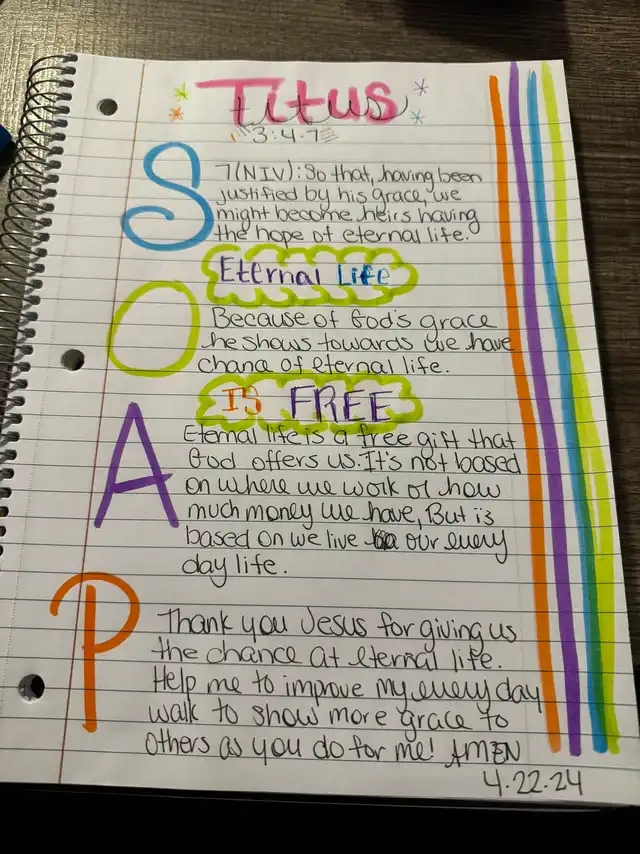 Titus
3:4-7
S
7(NIV): So that, having been
justified by his grace, we
might become heirs having
the hope of eternal life.
Eternal Life
O
Because of God's grace
he shows towards we have
chanc of eternal life.
IS FREE
A
Eternal life is a free gift that
God offers us. It's not based
on where we work or how
much money we have, But is
based on we live our every
day life.
P
Thank you Jesus for giving us
the chance at eternal life.
Help me to improve my every day
walk to show more grace to
others as you do for me! AMEN
4.22.24